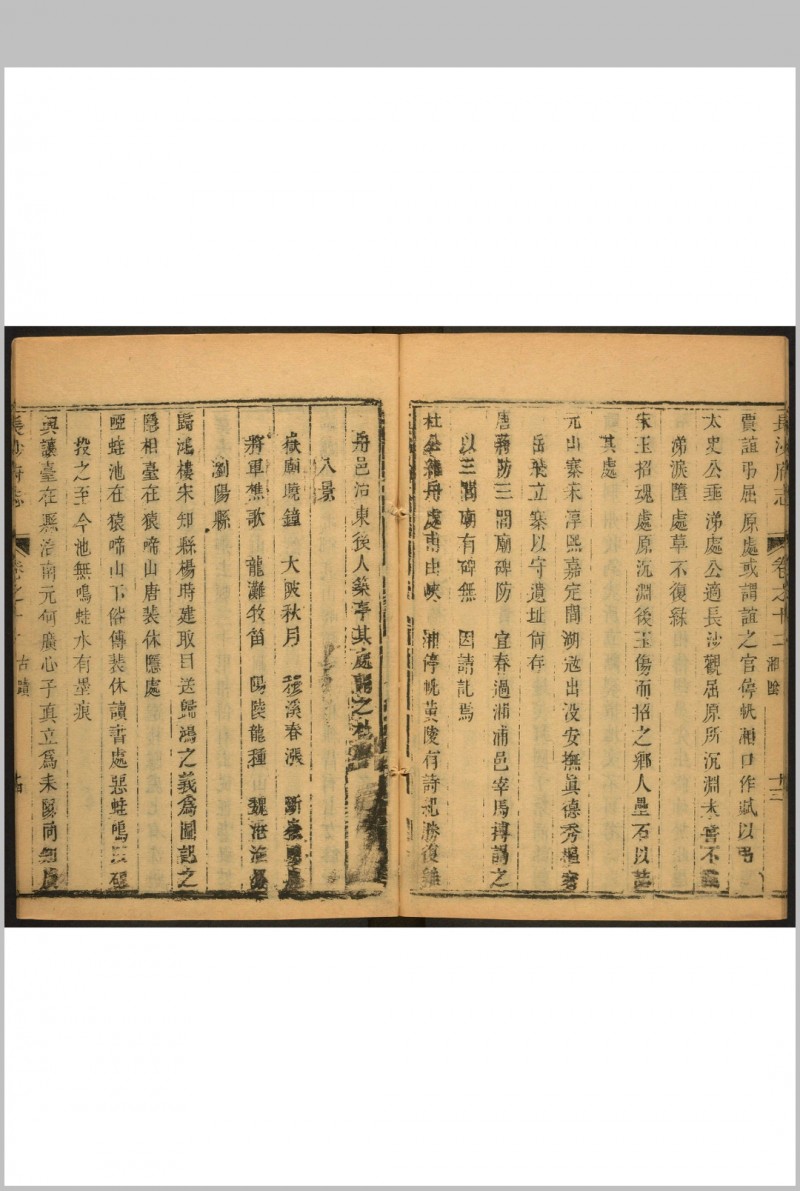 長沙府志 卷之十二 湘陰 十三
賈誼弔屈原處或謂誼之官停帆湘口作賦以弔
太史公垂涕處公適長沙觀屈原所沉淵未嘗不
涕淚墮處草不復綠
宋玉招魂處原沉淵後玉傷而招之鄉人壘石以
其處
元山寨宋淳熙嘉定間湖寇出没安撫真德秀
岳棐立寨以守遺址尚存
唐蔣防三閭廟碑防 宜春過湘浦邑宰馬摶謁之
以三閭廟有碑無 因請記焉
杜公維舟處甫由峽 浦停帆黄陵有詩 勝復
舟邑治東後人築亭其處
八景
嶽廟曉鐘 大陂秋月 穆溪春漲
將軍樵歌 龍灘牧笛 陽陸龍種 魏港漁
瀏陽縣
歸鴻樓宋知縣楊時建取目送歸鴻之義爲圖記之
隱相臺在猿啼山唐裴休隱處
啞蛙池在猿啼山下俗傳裴休讀書處惡蛙鳴
投之至今池無鳴蛙水有墨痕
與讓臺在縣治南元何廣心子真立爲
長沙府志 卷之十二 古蹟